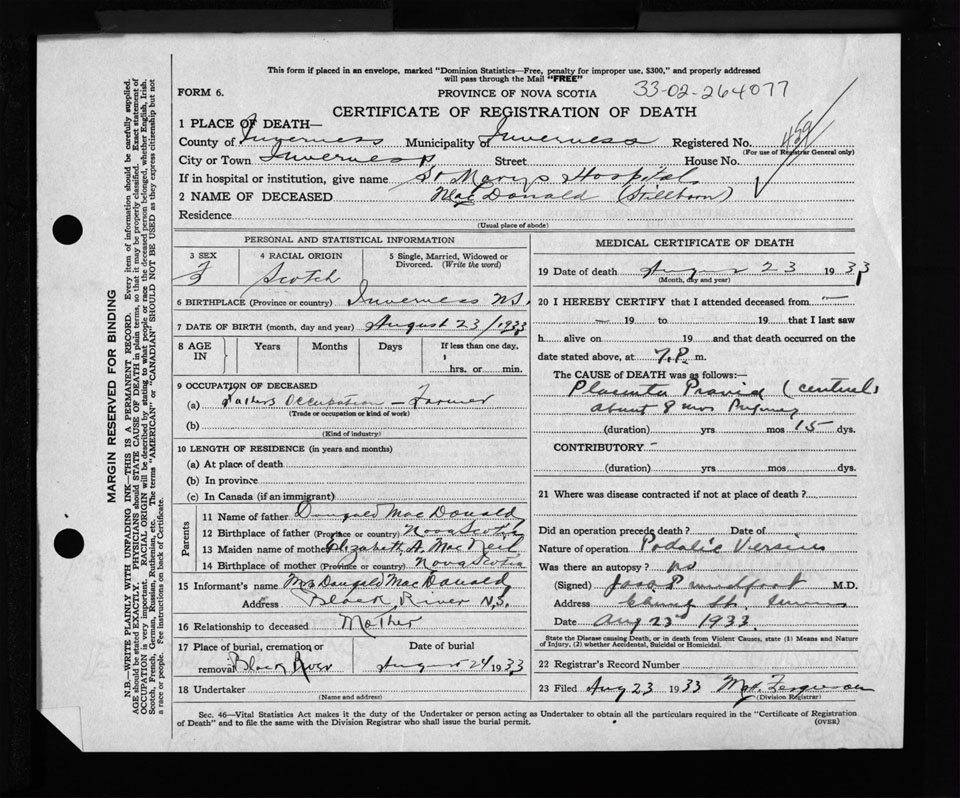 This form if placed in an envelope, marked "Dominion Statistics—Free, penalty for improper use, $300," and properly addressed
will pass through the Mail "FREE"
FORM 6. PROVINCE OF NOVA SCOTIA 33-02-264077
CERTIFICATE OF REGISTRATION OF DEATH
1 PLACE OF DEATH—
County of Inverness Municipality of Inverness Registered No. 459
(For use of Registrar General only)
City or Town Inverness Street House No.
If in hospital or institution, give name St Marys Hospital
2 NAME OF DECEASED MacDonald (Stillborn)
Residence
(Usual place of abode)
PERSONAL AND STATISTICAL INFORMATION
3 SEX 4 RACIAL ORIGIN 5 Single, Married, Widowed or
Divorced. (Write the word)
F Scotch
6 BIRTHPLACE (Province or country) Inverness N.S.
7 DATE OF BIRTH (month, day and year) August 23/1933
8 AGE IN Years Months Days If less than one day,
hrs. or min.
9 OCCUPATION OF DECEASED
(a) Fathers Occupation — Farmer
(Trade or occupation or kind of work)
(b)
(Kind of industry)
10 LENGTH OF RESIDENCE (in years and months)
(a) At place of death
(b) In province
(c) In Canada (if an immigrant)
Parents
11 Name of father Dougald MacDonald
12 Birthplace of father (Province or country) Nova Scotia
13 Maiden name of mother Elizabeth A. MacNeil
14 Birthplace of mother (Province or country) Nova Scotia
15 Informant's name Mrs Dougald MacDonald
Address Black River N.S.
16 Relationship to deceased Mother
17 Place of burial, cremation or Date of burial
removal Black River August 24 1933
18 Undertaker
(Name and address)
MEDICAL CERTIFICATE OF DEATH
19 Date of death August 23 1933
(Month, day and year)
20 I HEREBY CERTIFY that I attended deceased from —
— 19 to 19 that I last saw
h alive on 19 and that death occurred on the
date stated above, at 7.P. m.
The CAUSE OF DEATH was as follows:—
Placenta Previa (central)
about 8 mos
(duration) yrs mos 15 dys.
CONTRIBUTORY —
(duration) yrs mos dys.
21 Where was disease contracted if not at place of death?
Did an operation precede death? Date of
Nature of operation Podalic Version
Was there an autopsy? No
(Signed) M.D.
Address
Date Aug 23rd 1933
State the Disease causing Death, or in death from Violent Causes, state (1) Means and Nature
of Injury, (2) whether Accidental, Suicidal or Homicidal.
22 Registrar's Record Number
23 Filed Aug 23 1933 Ferguson
(Division Registrar)
Sec. 46—Vital Statistics Act makes it the duty of the Undertaker or person acting as Undertaker to obtain all the particulars required in the "Certificate of Registration
of Death" and to file the same with the Division Registrar who shall issue the burial permit. (OVER)
MARGIN RESERVED FOR BINDING
N.B.—WRITE PLAINLY WITH UNFADING INK—THIS IS A PERMANENT RECORD. Every item of information should be carefully supplied.
AGE should be stated EXACTLY. PHYSICIANS should STATE CAUSE OF DEATH in plain terms, so that it may be properly classified. Exact statement of
OCCUPATION is very important. RACIAL ORIGIN will be described by stating to what people or race the deceased person belonged, whether English, Irish,
Scotch, French, German, Russian, Ruthenian, etc. The terms "AMERICAN" or "CANADIAN" SHOULD NOT BE USED as they express citizenship but not
a race or people. Fee instructions on back of Certificate.